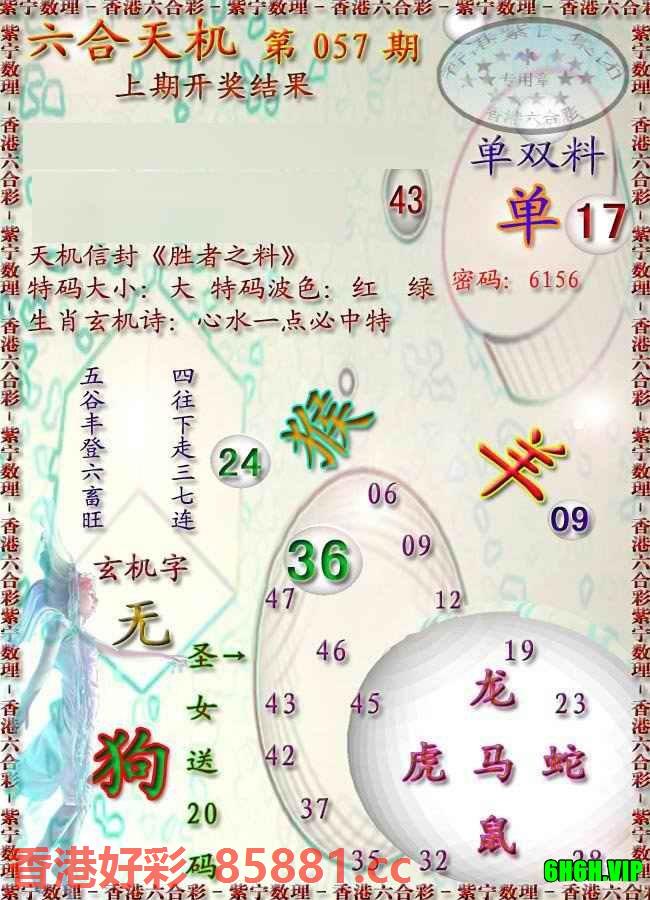 紫宁数理－香港六合彩－紫宁数理－香港六合彩－紫宁数理－香港六合彩
六合天机 第 057 期
上期开奖结果
专用章
香港六合彩
单双料
43
单 17
天机信封《胜者之料》
特码大小：大 特码波色：红 绿
密码：6156
生肖玄机诗：心水一点必中特
五谷丰登六畜旺
四往下走三七连
猴
24
羊
09
06
36
09
47
12
玄机字
无
圣女送20码
→
46
19
43
45
龙
23
狗
42
虎 马 蛇
37
鼠
35
32
28
香港好彩 85881.cc
6H6H.VIP
紫宁数理－香港六合彩－紫宁数理－香港六合彩－紫宁数理－香港六合彩